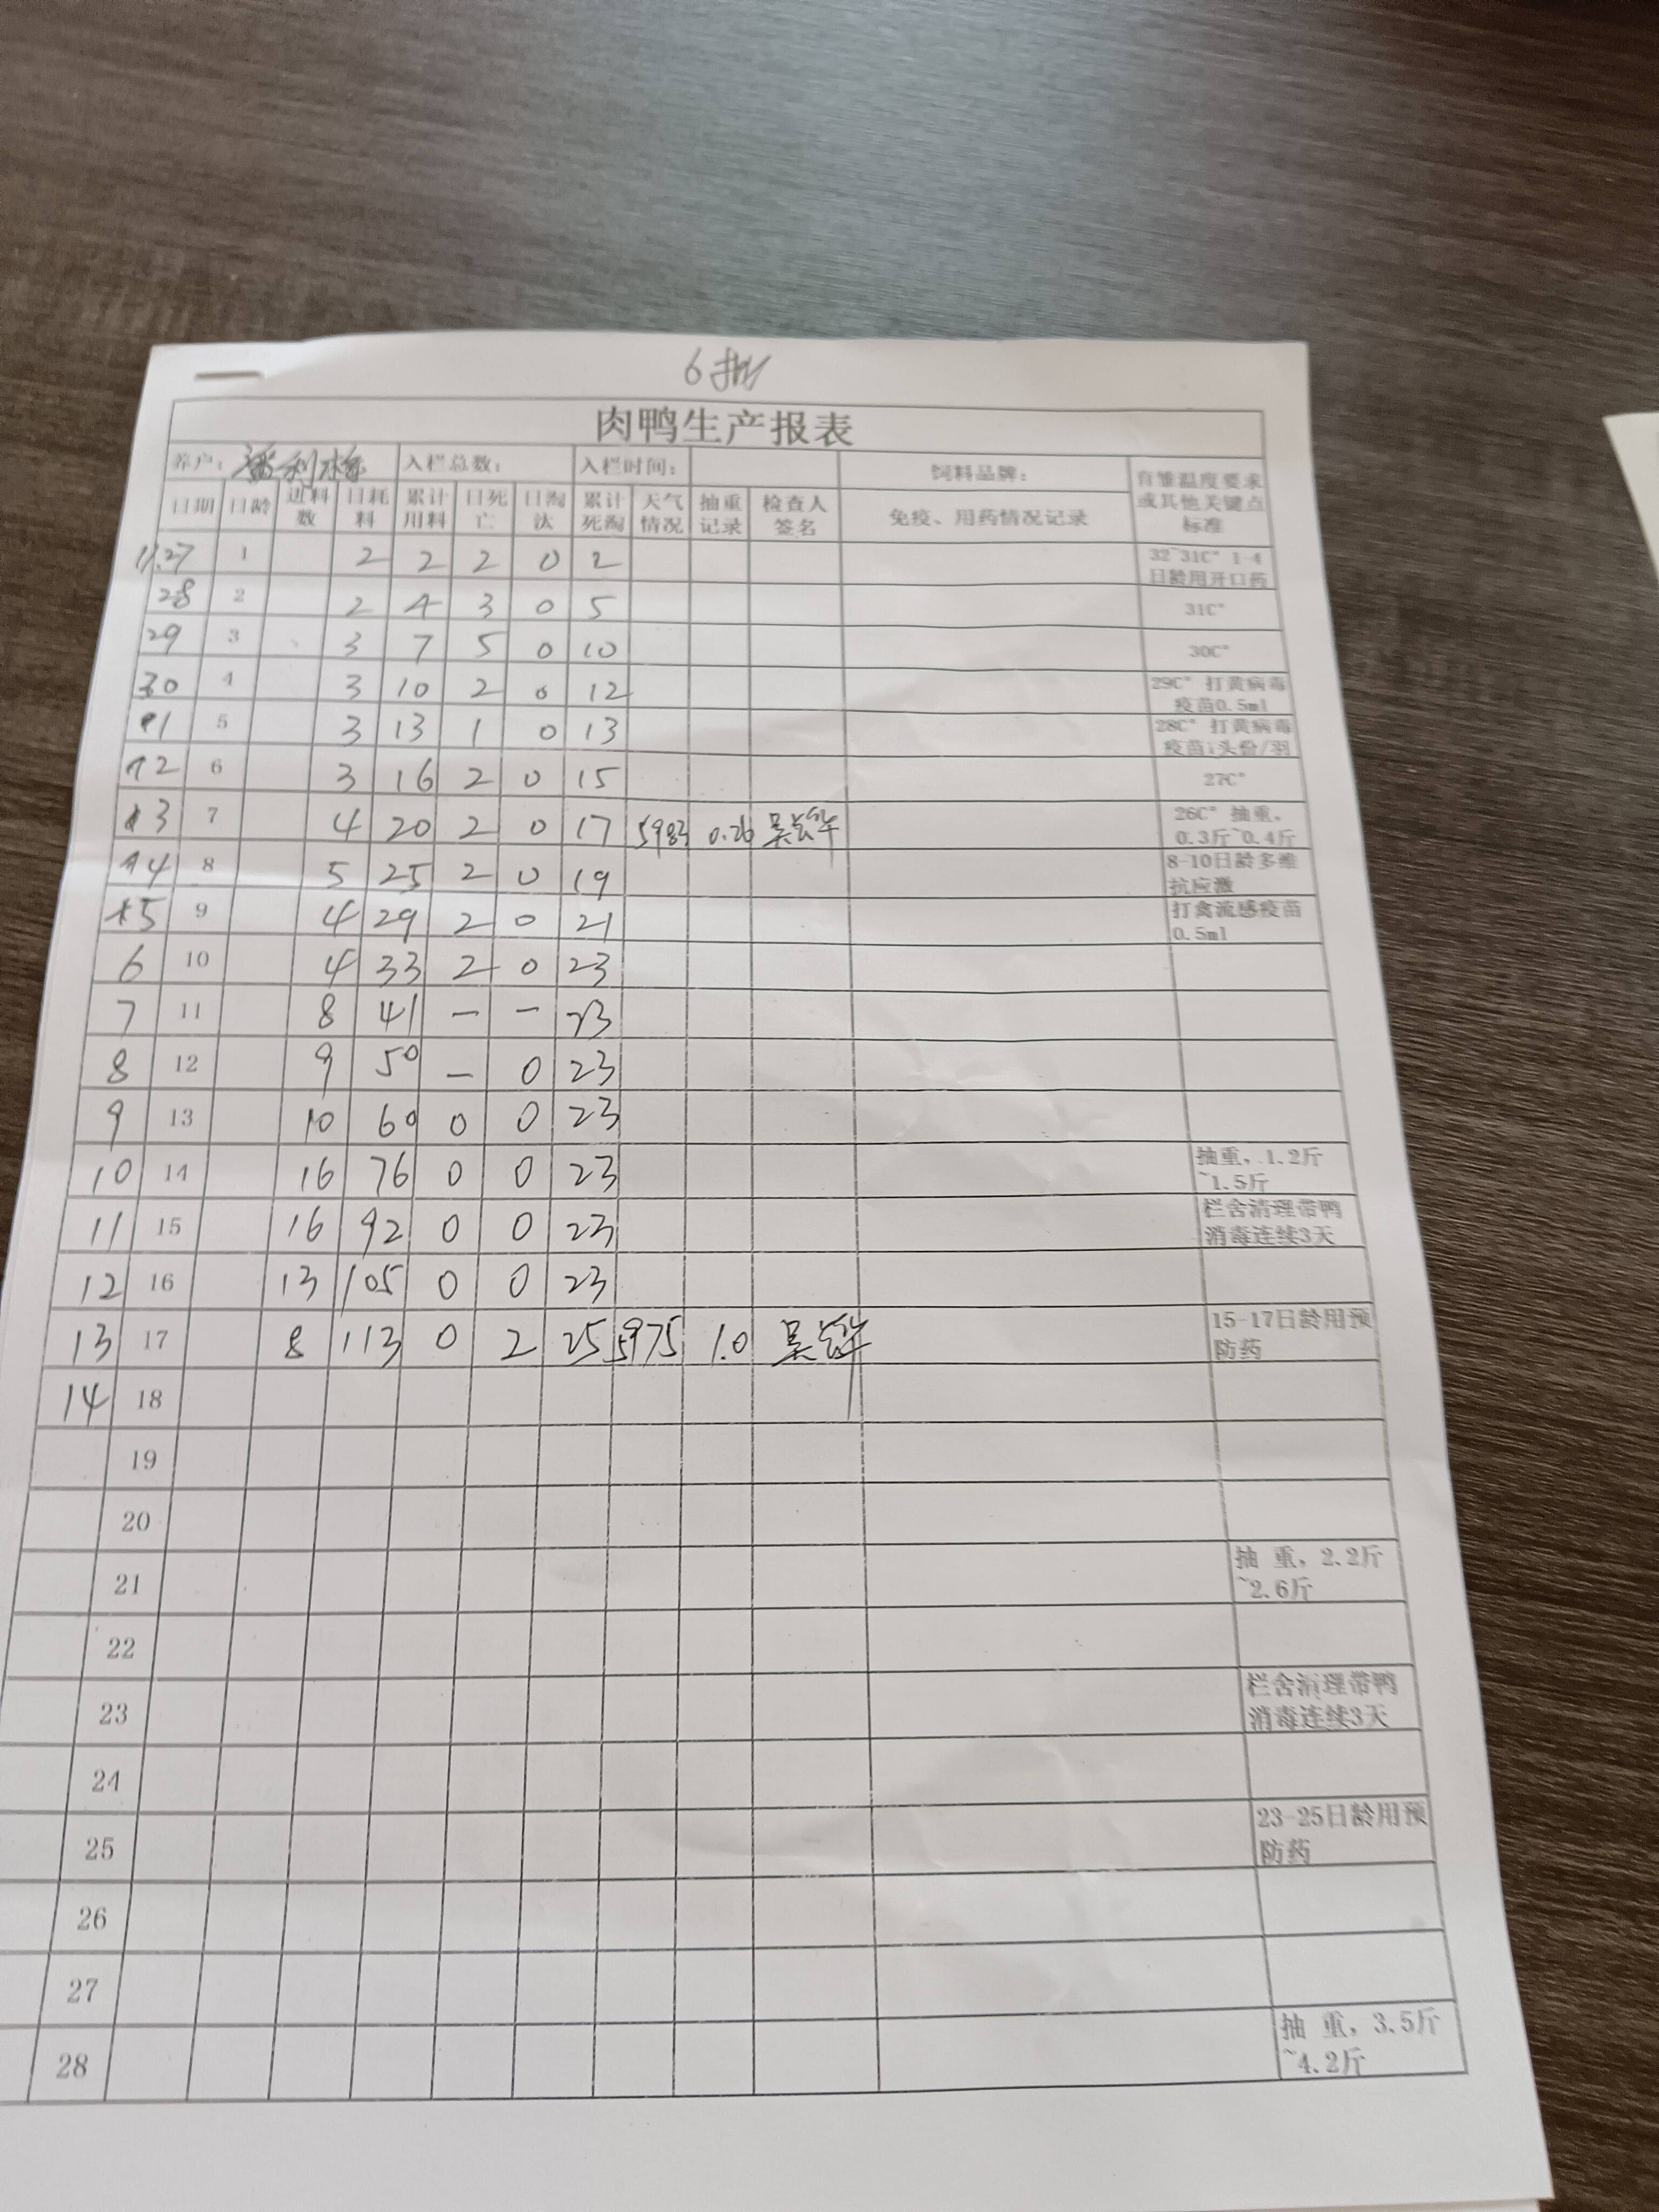 6批
肉鸭生产报表
养户: 潘利梅 入栏总数: 入栏时间: 饲料品牌: 育雏温度要求或其他关键点标准
日期 日龄 进料数 日耗料 累计用料 日死亡 日淘汰 累计死淘 天气情况 抽重记录 检查人签名 免疫、用药情况记录
11.27 1 2 2 2 0 2 32~31C° 1-4日龄用开口药
28 2 2 4 3 0 5 31C°
29 3 3 7 5 0 10 30C°
30 4 3 10 2 0 12 29C° 打黄病毒疫苗0.5ml
1 5 3 13 1 0 13 28C° 打黄病毒疫苗1头份/羽
2 6 3 16 2 0 15 27C°
3 7 4 20 2 0 17 5983 0.26 26C° 抽重,0.3斤~0.4斤
4 8 5 25 2 0 19 8-10日龄多维抗应激
5 9 4 29 2 0 21 打禽流感疫苗0.5ml
6 10 4 33 2 0 23
7 11 8 41 — — 23
8 12 9 50 — 0 23
9 13 10 60 0 0 23
10 14 16 76 0 0 23 抽重, 1.2斤~1.5斤
11 15 16 92 0 0 23 栏舍清理带鸭消毒连续3天
12 16 13 105 0 0 23
13 17 8 113 0 2 25 5975 1.0 15-17日龄用预防药
14 18
19
20
21 抽 重, 2.2斤~2.6斤
22
23 栏舍清理带鸭消毒连续3天
24
25 23-25日龄用预防药
26
27
28 抽 重, 3.5斤~4.2斤